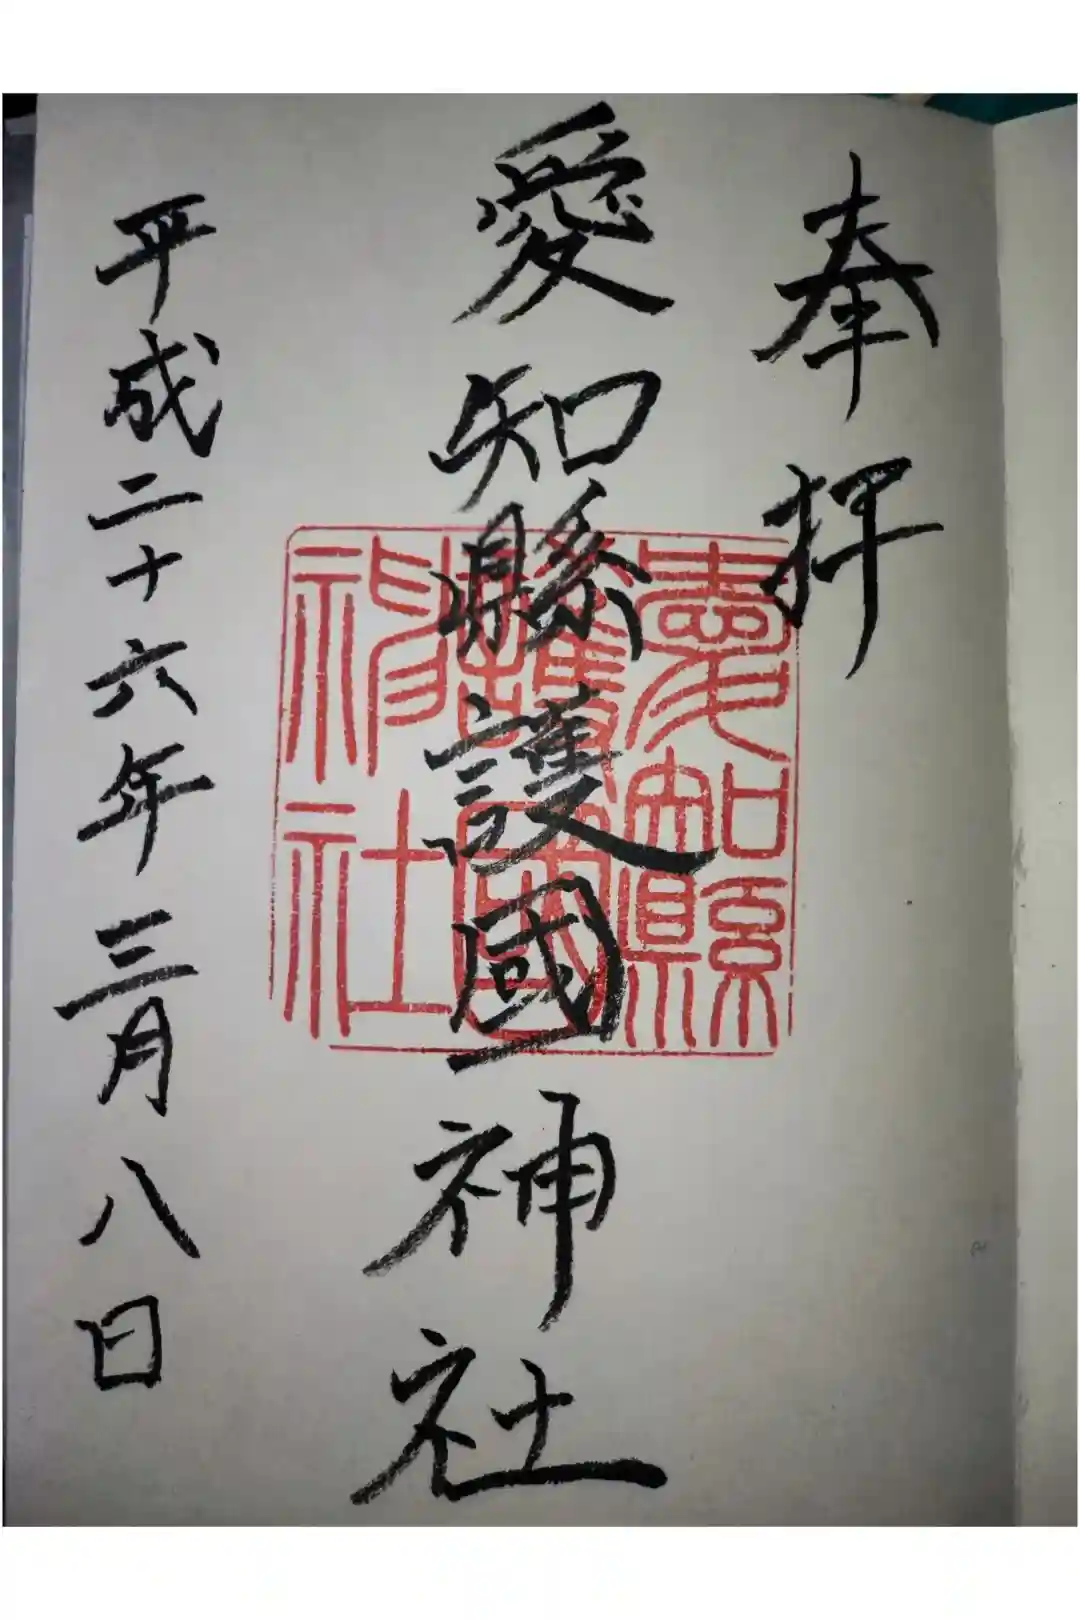 奉拝
愛知縣護國神社
愛知縣護國神社
平成二十六年三月八日